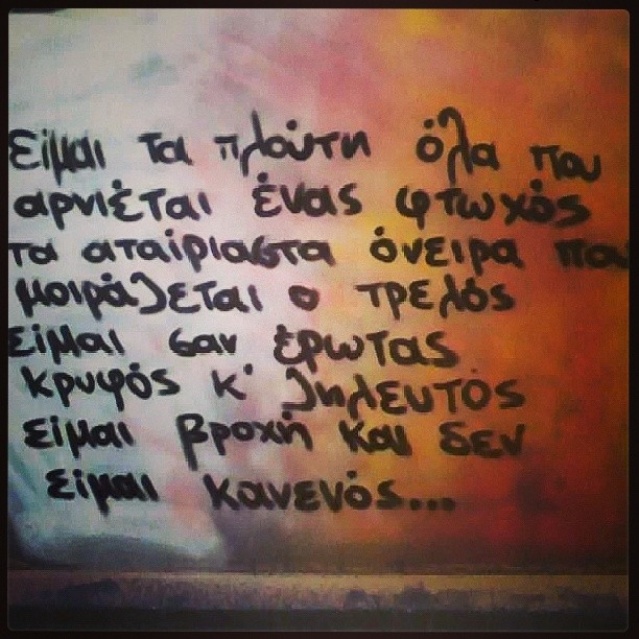 είμαι τα πλούτη όλα που
αρνιέται ένας φτωχός
τα αταίριαστα όνειρα που
μοιράζεται ο τρελός
είμαι σαν έρωτας
κρυφός κ' ζηλευτός
είμαι βροχή και δεν
είμαι κανενός...